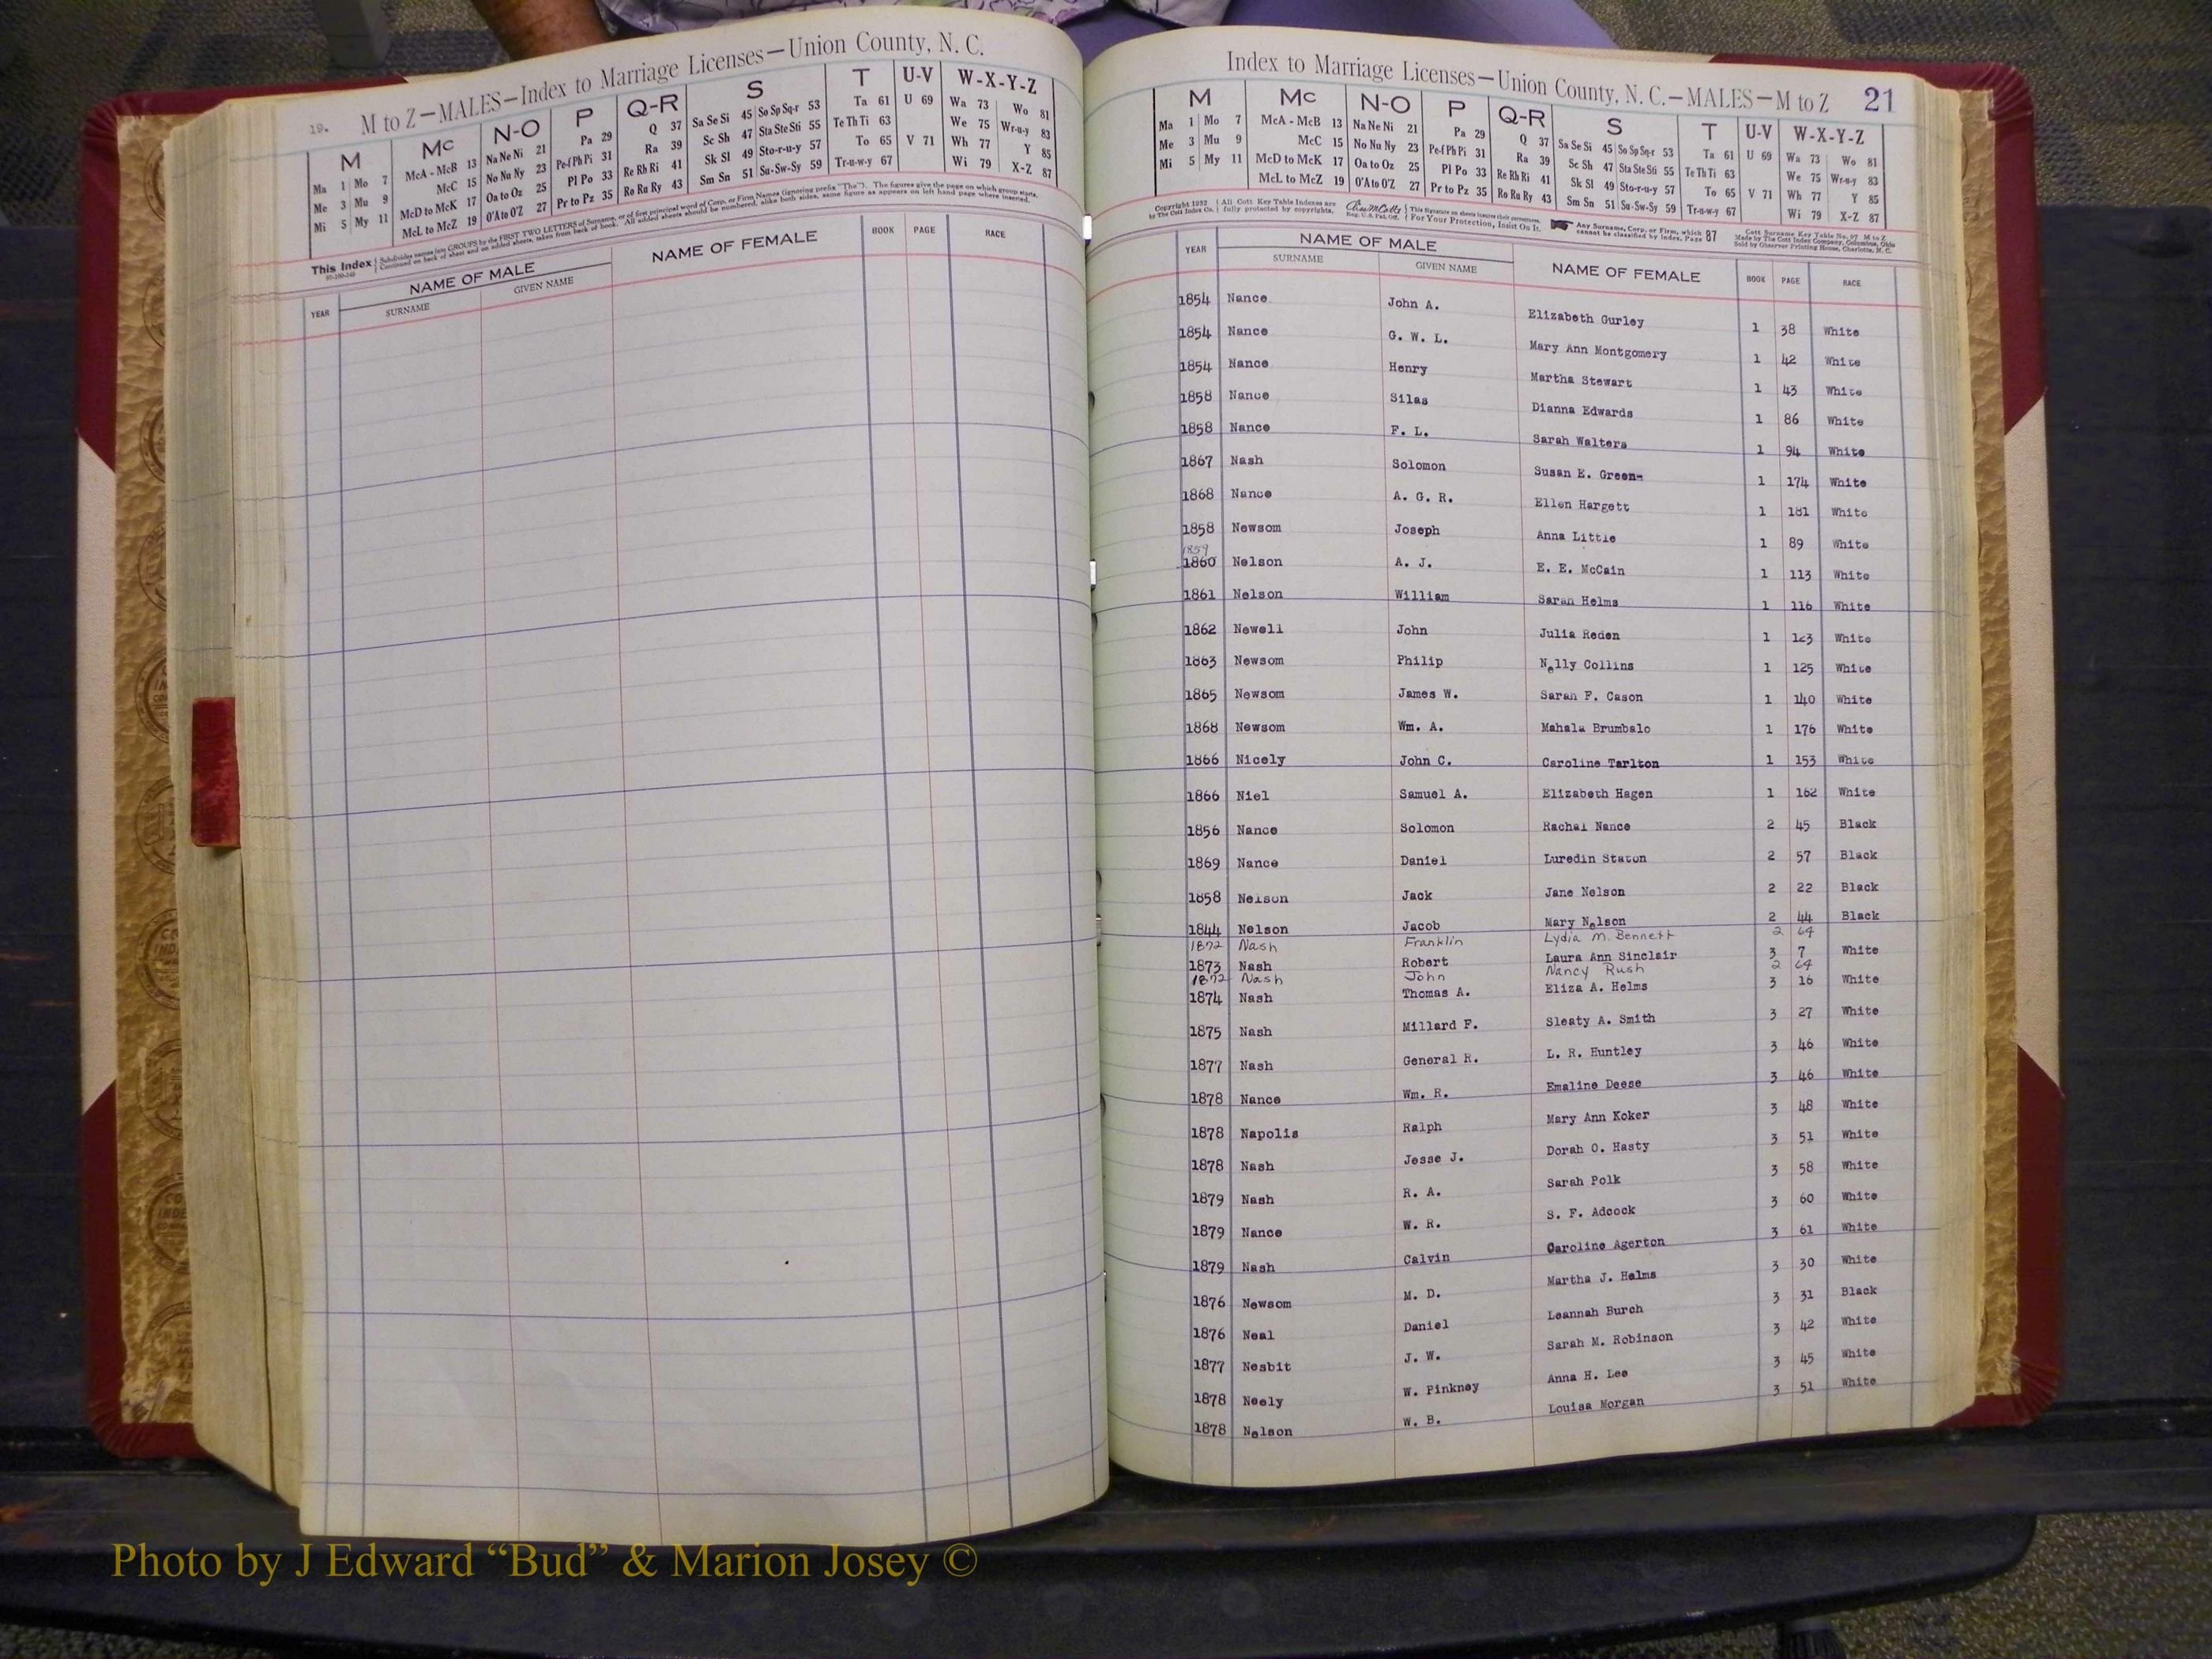 19. M to Z—MALES—Index to Marriage Licenses—Union County, N. C.
M Mc N-O P Q-R S T U-V W-X-Y-Z
Ma 1 Mo 7 McA - McB 13 Na Ne Ni 21 Pa 29 Q 37 Sa Se Si 45 So Sp Sq-r 53 Ta 61 U 69 Wa 73 Wo 81
Me 3 Mu 9 McC 15 No Nu Ny 23 Pe-f Ph Pi 31 Ra 39 Sc Sh 47 Sta Ste Sti 55 Te Th Ti 63 We 75 Wr-u-y 83
Mi 5 My 11 McD to McK 17 Oa to Oz 25 Pl Po 33 Re Rh Ri 41 Sk Sl 49 Sto-r-u-y 57 To 65 V 71 Wh 77 Y 85
McL to McZ 19 O'A to O'Z 27 Pr to Pz 35 Ro Ru Ry 43 Sm Sn 51 Su-Sw-Sy 59 Tr-u-w-y 67 Wi 79 X-Z 87
This Index Subdivides names into GROUPS by the FIRST TWO LETTERS of Surname, or of first principal word of Corp. or Firm Names (ignoring prefix "The"). The figures give the page on which group starts.
Continued on back of sheet and on added sheets, taken from back of book. All added sheets should be numbered, alike both sides, same figure as appears on left hand page where inserted.
YEAR NAME OF MALE NAME OF FEMALE BOOK PAGE RACE
SURNAME GIVEN NAME
Index to Marriage Licenses—Union County, N. C.—MALES—M to Z 21
M Mc N-O P Q-R S T U-V W-X-Y-Z
Ma 1 Mo 7 McA - McB 13 Na Ne Ni 21 Pa 29 Q 37 Sa Se Si 45 So Sp Sq-r 53 Ta 61 U 69 Wa 73 Wo 81
Me 3 Mu 9 McC 15 No Nu Ny 23 Pe-f Ph Pi 31 Ra 39 Sc Sh 47 Sta Ste Sti 55 Te Th Ti 63 We 75 Wr-u-y 83
Mi 5 My 11 McD to McK 17 Oa to Oz 25 Pl Po 33 Re Rh Ri 41 Sk Sl 49 Sto-r-u-y 57 To 65 V 71 Wh 77 Y 85
McL to McZ 19 O'A to O'Z 27 Pr to Pz 35 Ro Ru Ry 43 Sm Sn 51 Su-Sw-Sy 59 Tr-u-w-y 67 Wi 79 X-Z 87
Copyright 1932 by The Cott Index Co. All Cott Key Table Indexes are fully protected by copyrights. Reg. U.S. Pat. Off. For Your Protection, Insist On It. Any Surname, Corp. or Firm, which cannot be classified by index, Page 87
Made by The Cott Index Company, Columbus, Ohio
Sold by Observer Printing House, Charlotte, N. C.
YEAR NAME OF MALE NAME OF FEMALE BOOK PAGE RACE
SURNAME GIVEN NAME
1854 Nance John A. Elizabeth Gurley 1 38 White
1854 Nance G. W. L. Mary Ann Montgomery 1 42 White
1854 Nance Henry Martha Stewart 1 43 White
1858 Nance Silas Dianna Edwards 1 86 White
1858 Nance F. L. Sarah Walters 1 94 White
1867 Nash Solomon Susan E. Green- 1 174 White
1868 Nance A. G. R. Ellen Hargett 1 181 White
1858 Newsom Joseph Anna Little 1 89 White
1859
1860 Nelson A. J. E. E. McCain 1 113 White
1861 Nelson William Sarah Helms 1 116 White
1862 Newell John Julia Reden 1 123 White
1863 Newsom Philip Nelly Collins 1 125 White
1865 Newsom James W. Sarah F. Cason 1 140 White
1868 Newsom Wm. A. Mahala Brumbalo 1 176 White
1866 Nicely John C. Caroline Tarlton 1 153 White
1866 Niel Samuel A. Elizabeth Hagen 1 162 White
1856 Nance Solomon Rachal Nance 2 45 Black
1869 Nance Daniel Luredin Staton 2 57 Black
1858 Nelson Jack Jane Nelson 2 22 Black
1844 Nelson Jacob Mary Nelson 2 44 Black
1872 Nash Franklin Lydia M. Bennett 2 64
1873 Nash Robert Laura Ann Sinclair 3 7 White
1872 Nash John Nancy Rush 2 64
1874 Nash Thomas A. Eliza A. Helms 3 16 White
1875 Nash Millard F. Sleaty A. Smith 3 27 White
1877 Nash General R. L. R. Huntley 3 46 White
1878 Nance Wm. R. Emaline Deese 3 46 White
1878 Napolis Ralph Mary Ann Koker 3 48 White
1878 Nash Jesse J. Dorah O. Hasty 3 51 White
1879 Nash R. A. Sarah Polk 3 58 White
1879 Nance W. R. S. F. Adcock 3 60 White
1879 Nash Calvin Caroline Agerton 3 61 White
1876 Newsom M. D. Martha J. Helms 3 30 White
1876 Neal Daniel Leannah Burch 3 31 Black
1877 Nesbit J. W. Sarah M. Robinson 3 42 White
1878 Neely W. Pinkney Anna H. Lee 3 45 White
1878 Nelson W. B. Louisa Morgan 3 51 White
Photo by J Edward “Bud” & Marion Josey ©